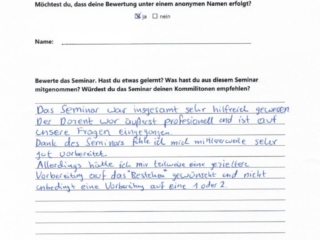 Möchtest du, dass deine Bewertung unter einem anonymen Namen erfolgt?
☒ ja ☐ nein
Name:
Bewerte das Seminar. Hast du etwas gelernt? Was hast du aus diesem Seminar
mitgenommen? Würdest du das Seminar deinen Kommilitonen empfehlen?
Das Seminar war insgesamt sehr hilfreich gewesen
Der Dozent war äußerst profesionell und ist auf
unsere Fragen eingegangen
Dank des Seminars fühle ich mich mittlerweile sehr
gut vorbereitet.
Allerdings hätte ich mir teilweise eine gezieltere
Vorbereitung auf das "Bestehen" gewünscht und nicht
unbedingt eine Vorbereitung auf eine 1 oder 2.